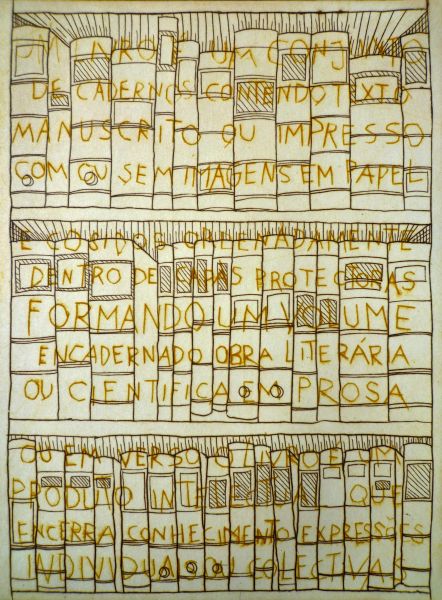 UM LIVRO É UM CONJUNTO
DE CADERNOS CONTENDO TEXTO
MANUSCRITO OU IMPRESSO
COM OU SEM IMAGENS EM PAPEL
E COSIDOS ORDENADAMENTE
DENTRO DE CAPAS PROTECTORAS
FORMANDO UM VOLUME
ENCADERNADO OBRA LITERÁRIA
OU CIENTIFICA EM PROSA
OU EM VERSO O LIVRO É UM
PRODUTO INTELECTUAL QUE
ENCERRA CONHECIMENTO EXPRESSÕES
INDIVIDUAIS OU COLECTIVAS